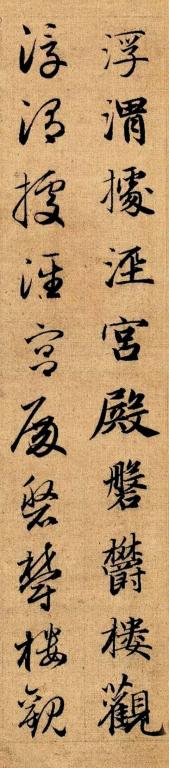 浮渭據涇宮殿磐欝樓觀
浮渭據涇宮殿磐欝樓觀